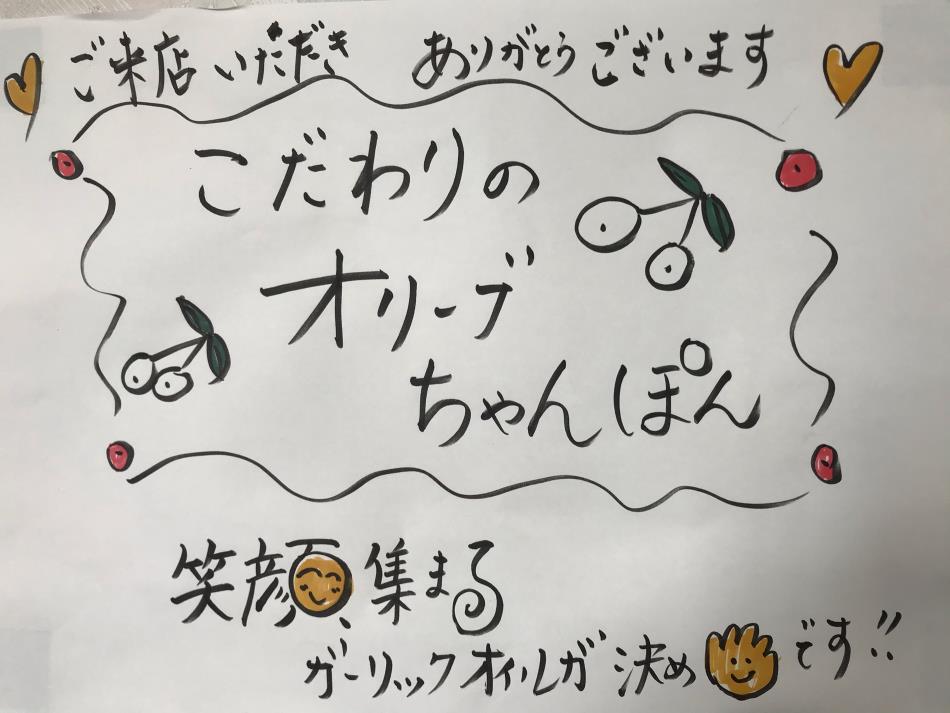 ご来店いただき ありがとうございます
こだわりの
オリーブ
ちゃんぽん
笑顔集まる
ガーリックオイルガ決めです!!